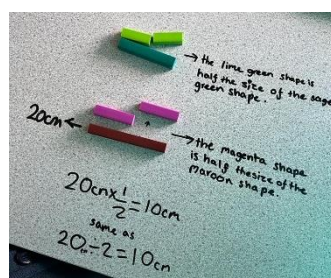 → the lime green shape is
half the size of the sage
green shape.
20cm ←
→ the magenta shape
is half the size of the
maroon shape.
20cm x 1/2 = 10cm
same as
20 ÷ 2 = 10cm